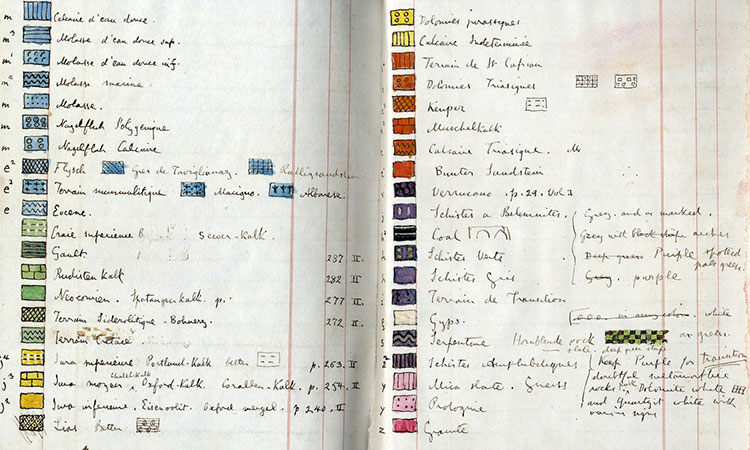 m Calcaire d'eau douce.
m3 Molasse d'eau douce sup.
m1 Molasse d'eau douce inf.
m2 Molasse marine.
m Molasse.
m Nagelfluh Polygenique
m Nagelfluh Calcaire
e2 Flysch Gres de Taviglianaz. Ralligsandstein
e2 Terrain nummulitique Macigno. Alberese.
e Eocene.
Craie superieure Sewer-Kalk.
Gault 287 II.
Rudisten Kalk 282 II
Neocomien. Spatangenkalk. p. 277 II.
Terrain Siderolitique. Bohnerz. 272 II.
Terrain Cretace
j4 Jura superieure Portland-Kalk better p. 263. II
j3 Jura moyen. Oxford-Kalk. Corallen-Kalk. p. 254. II
j2 Jura inferieure. Eisenoolit. Oxford mergel. p 240. II
Lias Better
Dolomies jurassiques
Calcaire Indeterminée
Terrain de St Cassian
Dolomies Triasiques
Keuper
Muschelkalk
Calcaire Triasique. M
Bunter Sandstein
Verrucano. p. 29. Vol 3
j Schistes a Belemnites. Grey. and as marked.
Coal Grey with black stripe arches
Schistes Verts Deep green Purple spotted pale green.
Schistes Gris Grey. purple
Terrain de Transition
g Gyps. white
s Serpentine Hornblende rock as green.
slate. deep green stripe
Schistes Amphiboliques Keep Purple for Transition
y Mica slate. Gneiss doubtful metamorphic
rocks. Dolomite white
y Protogine and Quartzit white with
various signs
z Granite